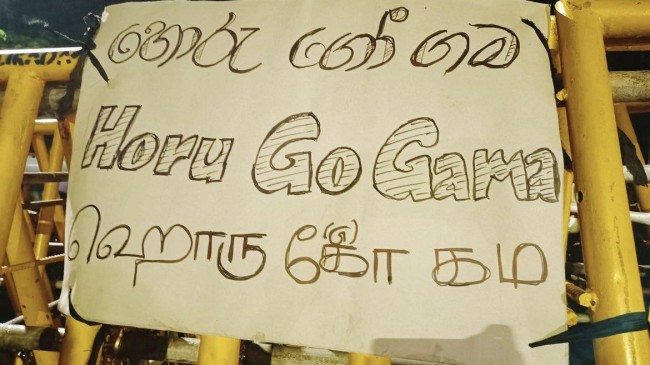 හොරු ගෝ ගම
Horu Go Gama
(g)
ஹொரு கோ கம